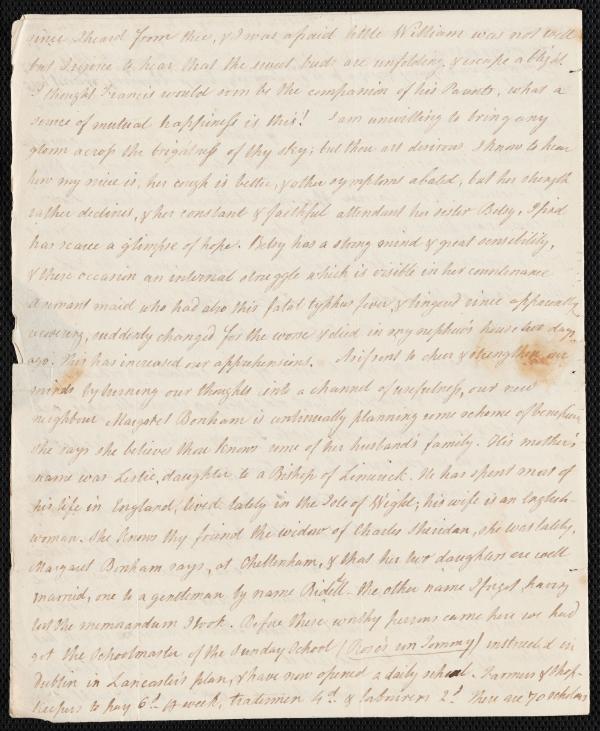 since I heard from thee, & I was afraid little William was not well
but rejoice to hear that the sweet buds are unfolding & escape a blight
I thought Francis would soon be the companion of his Parents, what a
source of mutual happiness is this! I am unwilling to bring any
gloom across the brightness of thy sky; but thou art desirous I know to hear
how my niece is, her cough is better, & other symptoms abated, but her strength
rather declines, & her constant & faithful attendant her sister Betsy, I find
has scarce a glimpse of hope. Betsy has a strong mind & great sensibility,
& these occasion an internal struggle which is visible in her countenance
a servant maid who had also this fatal typhus fever, & linger'd since apparently
recovering, suddenly changed for the worse & died in my nephew's house two days
ago. This has increased our apprehensions. As if sent to cheer & strengthen our
minds by turning our thoughts into a channel of usefulness, our new
neighbour Margaret Bonham is continually planning some scheme of beneficence
she says she believes thou knows some of her husband's family. His mother's
name was Leslie, daughter to a Bishop of Limerick. He has spent most of
his life in England, lived lately in the Isle of Wight; his wife is an English-
woman. She knows thy friend the widow of Charles Sheridan, she was lately,
Margaret Bonham says, at Cheltenham, & that her two daughters are well
married, one to a gentleman by name Ridell - the other name I forgot, having
lost the memorandum I took. Before these worthy persons came here we had
got the Schoolmaster of the Sunday School (Rose's son Tommy) instructed in
Dublin in Lancaster's plan, & have now opened a daily school. Farmers & Shop-
keepers to pay 6d. ⅌ week, tradesmen 4d. & labourers 2d. There are 70 scholars